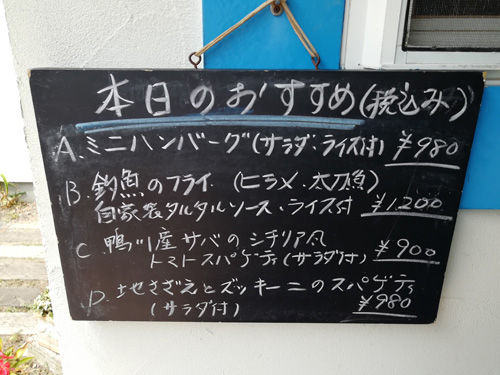 本日のおすすめ(税込み)
A.ミニハンバーグ(サラダ・ライス付) ¥980
B.釣魚のフライ (ヒラメ・太刀魚)
自家製タルタルソース・ライス付 ¥1,200
C 鴨川産サバのシチリア風
トマトスパゲティ(サラダ付) ¥900
D.地さざえとズッキーニのスパゲティ
(サラダ付) ¥980